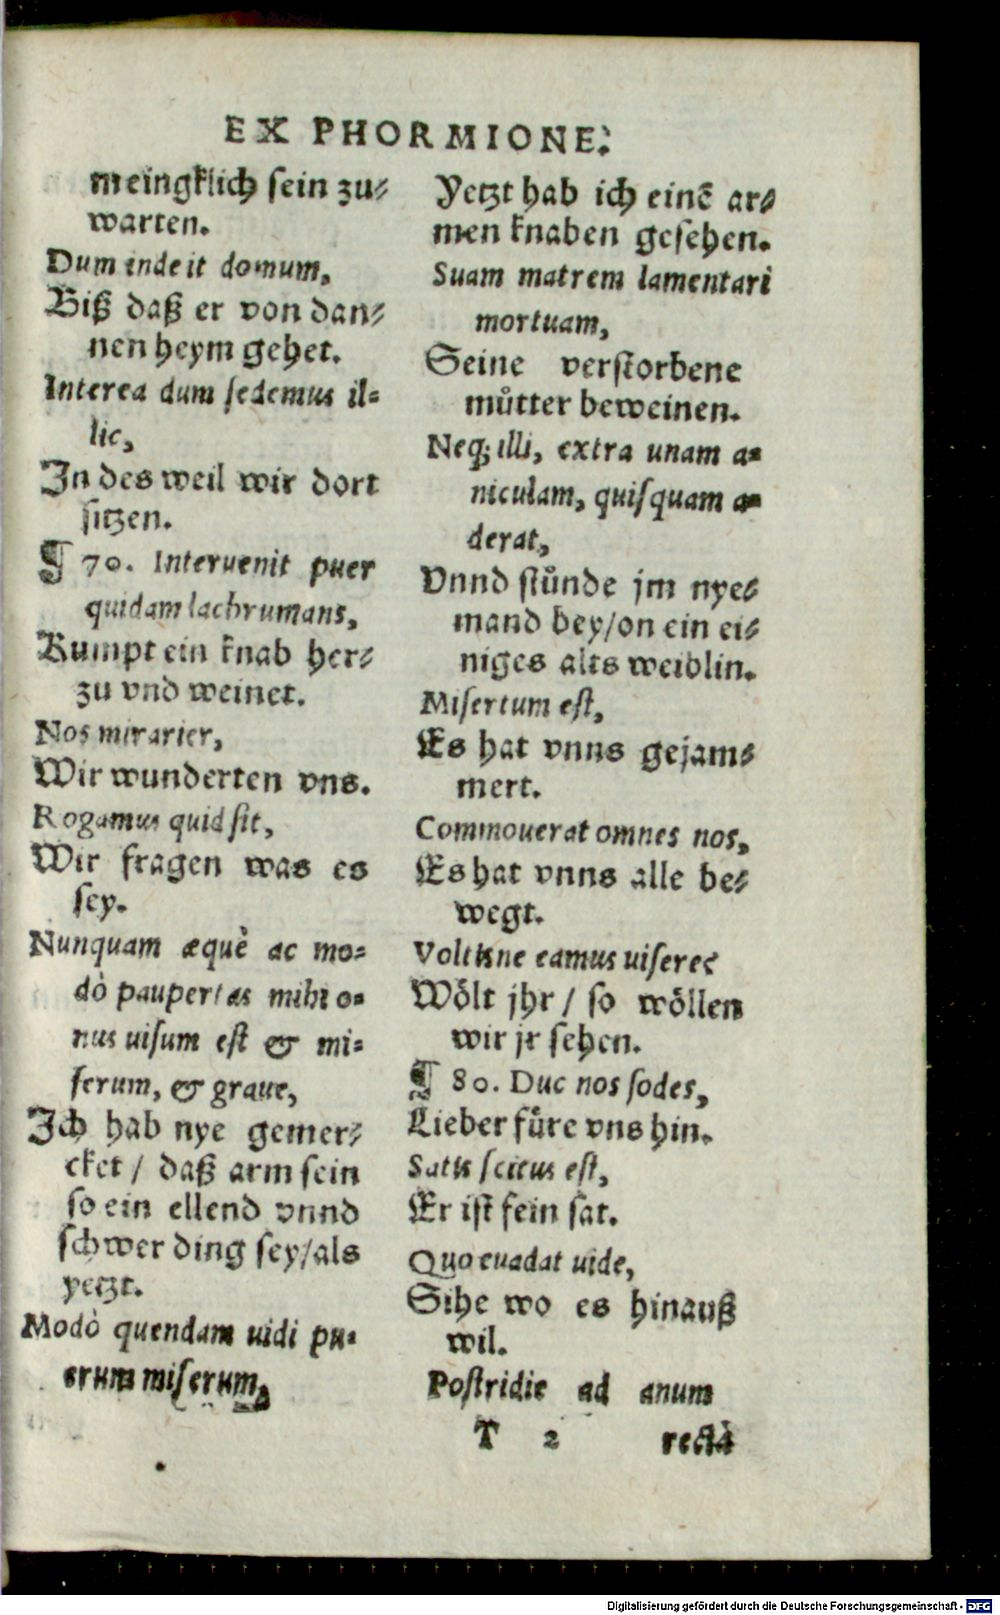 EX PHORMIONE.
meingklich sein zu⸗
warten.
Dum inde it domum,
Biß daß er von dan⸗
nen heym gehet.
Interea dum ſedemus il⸗
lic,
In des weil wir dort
ſitzen.
¶ 70. Interuenit puer
quidam lachrumans,
Kumpt ein knab her⸗
zu vnd weinet.
Nos mirarier,
Wir wunderten vns.
Rogamus quid ſit,
Wir fragen was es
ſey.
Nunquam æquè ac mo⸗
dò paupertas mihi o⸗
nus uiſum eſt & mi⸗
ſerum, & graue,
Ich hab nye gemer⸗
cket / daß arm ſein
ſo ein ellend vnnd
ſchwer ding ſey/als
yetzt.
Modò quendam uidi pu⸗
erum miſerum,
Yetzt hab ich einē ar⸗
men knaben geſehen.
Suam matrem lamentari
mortuam,
Seine verſtorbene
můtter beweinen.
Neq; illi, extra unam a⸗
niculam, quiſquam a⸗
derat,
Vnnd ſtůnde jm nye⸗
mand bey/on ein ei⸗
niges alts weiblin.
Miſertum eſt,
Es hat vnns gejam⸗
mert.
Commouerat omnes nos,
Es hat vnns alle be⸗
wegt.
Voltisne eamus uiſere?
Wölt jhr / ſo wöllen
wir jr ſehen.
¶ 80. Duc nos ſodes,
Lieber füre vns hin.
Satis ſcitus eſt,
Er iſt fein ſat.
Quo euadat uide,
Sihe wo es hinauß
wil.
Poſtridie ad anum
T 2 rectà
Digitalisierung gefördert durch die Deutsche Forschungsgemeinschaft - DFG